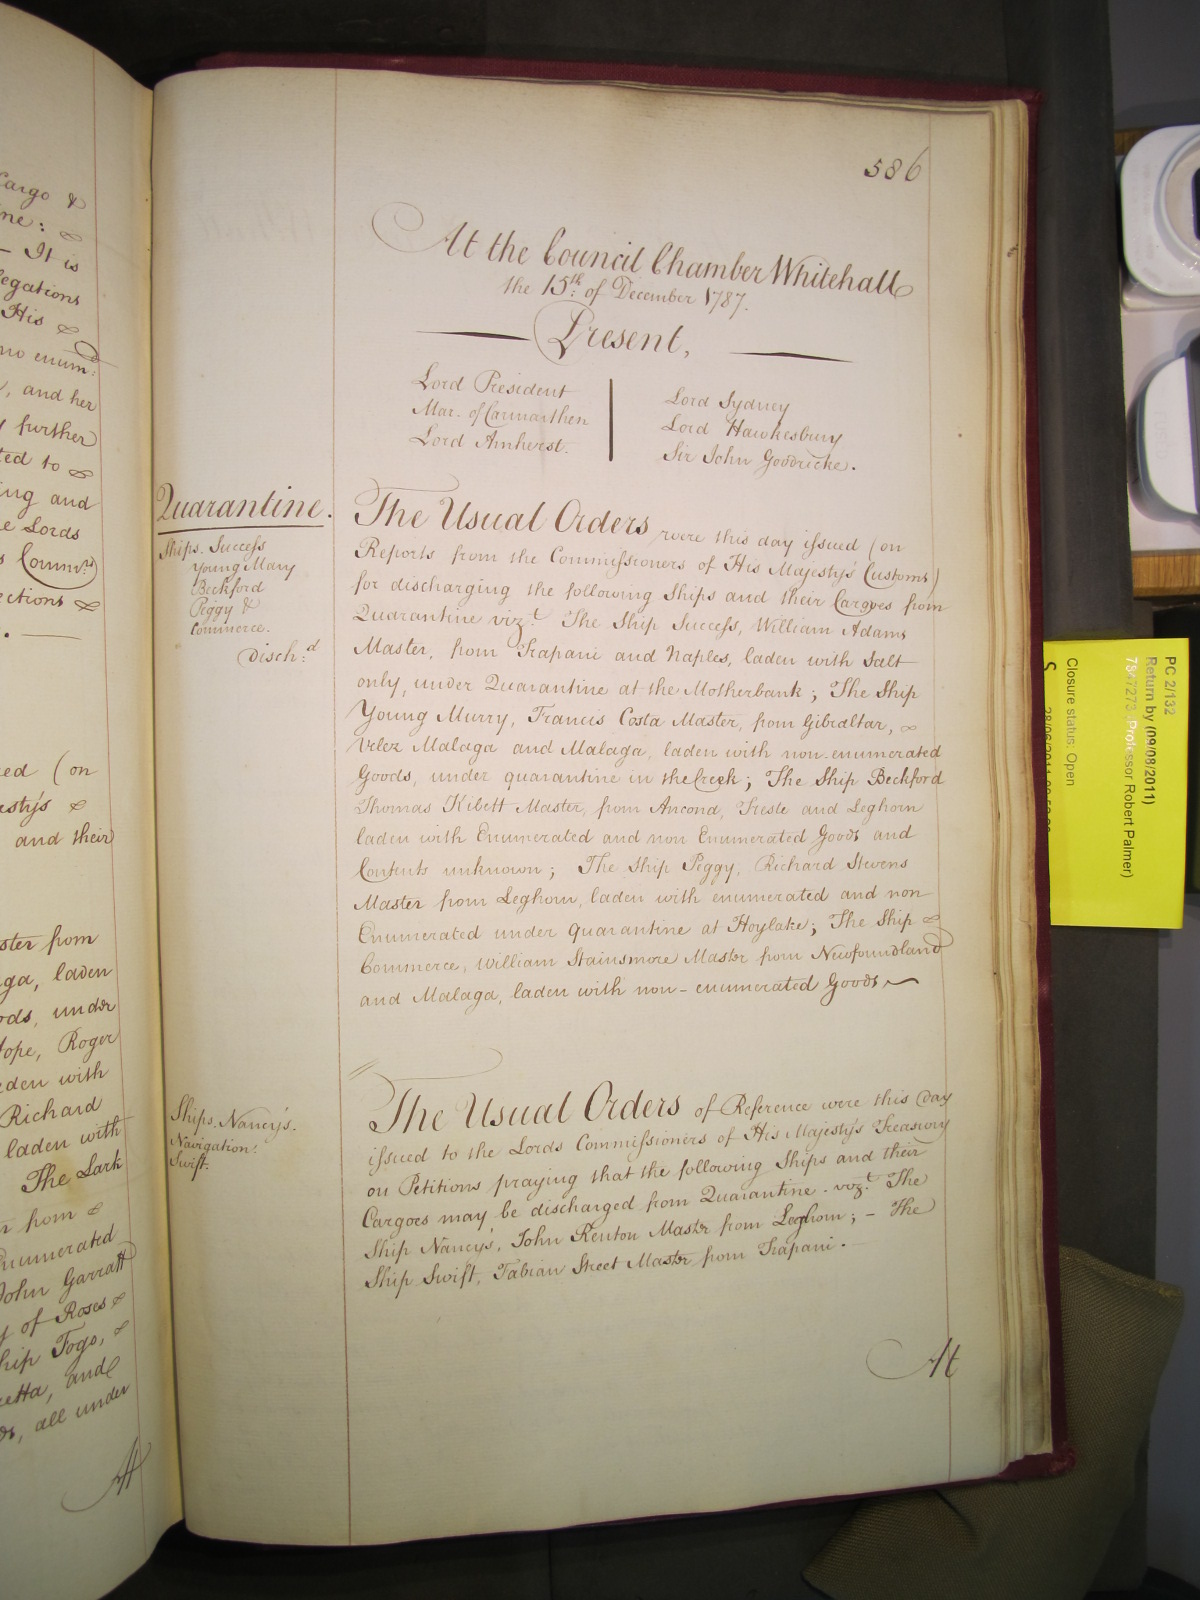 Cargo &
ine:
- It is
legations
His
no enum:
, and her
y further
ted to
ing and
e Lords
s Comm.rs
ections
ed (on
asty's
and their
ster from
ga, laden
ods, under
Hope, Roger
aden with
Richard
laden with
The Lark
n from
Enumerated
John Garratt
y of Roses
hip Fogo,
etta, and
ds, all under
At
586
At the Council Chamber Whitehall
the 15th: of December 1787.
Present,
Lord President
Mar. of Carmarthen
Lord Amherst.
Lord Sydney
Lord Hawkesbury
Sir John Goodricke.
Quarantine.
Ships. Success
Young Mary
Beckford
Peggy &
Commerce.
Disch:d
The Usual Orders were this day issued (on
Reports from the Commissioners of His Majesty's Customs)
for discharging the following Ships and their Cargoes from
Quarantine vizt. The Ship Success, William Adams
Master, from Trapani and Naples, laden with Salt
only, under Quarantine at the Motherbank; The Ship
Young Murry, Francis Costa Master, from Gibraltar,
Velez Malaga and Malaga, laden with non-enumerated
Goods, under quarantine in the Creek; The Ship Beckford
Thomas Kibett Master, from Ancona, Trieste and Leghorn
laden with Enumerated and non Enumerated Goods and
Contents unknown; The Ship Peggy, Richard Stevens
Master from Leghorn, laden with enumerated and non
Enumerated under Quarantine at Hoylake; The Ship
Commerce, William Stainsmore Master from Newfoundland
and Malaga, laden with non-enumerated Goods
Ships. Nancy's.
Navigation.
Swift.
The Usual Orders of Reference were this day
issued to the Lords Commissioners of His Majesty's Treasury
on Petitions praying that the following Ships and their
Cargoes may be discharged from Quarantine. vizt. The
Ship Nancy's, John Renton Master from Leghorn; - The
Ship Swift, Fabian Street Master from Trapani.
At
PC 2/132
Return by (09/08/2011)
7847273 Professor Robert Palmer)
Closure status: Open
S